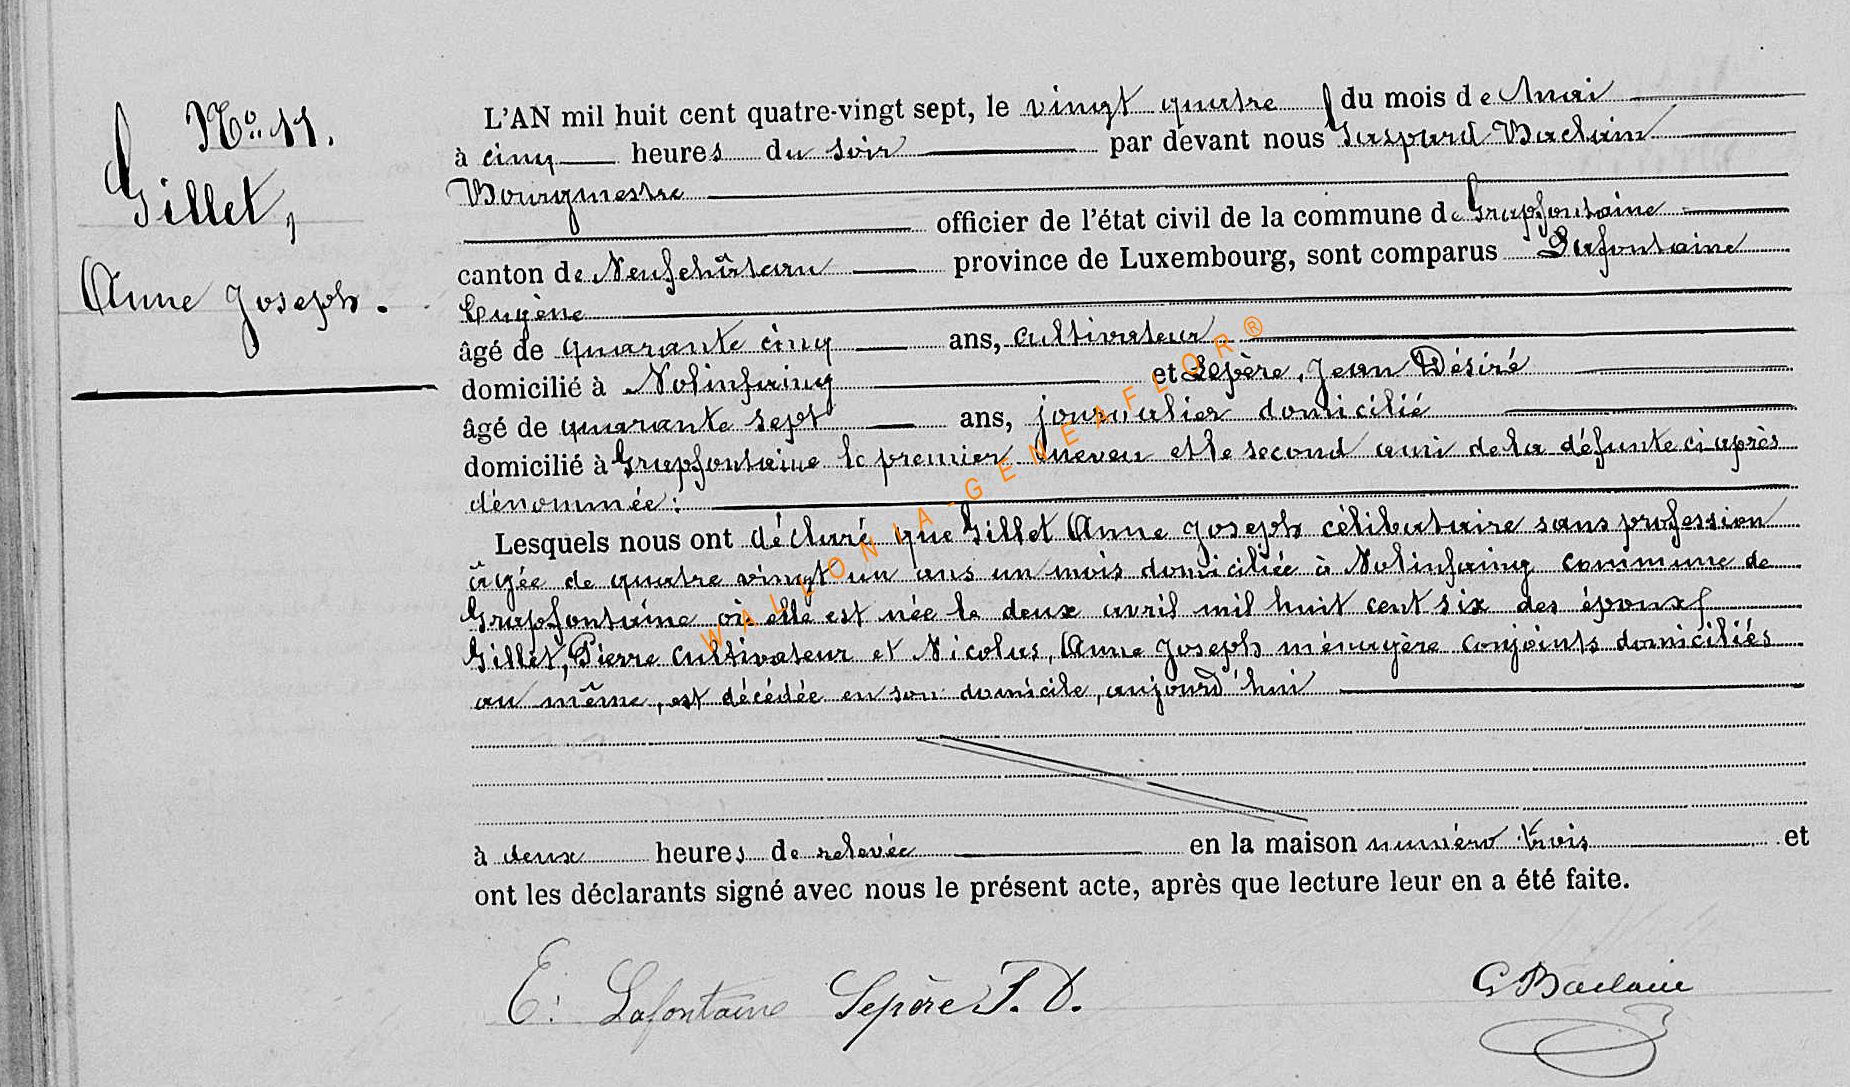 No. 11.
Gillet,
Anne Joseph.
L'AN mil huit cent quatre-vingt sept, le vingt quatre du mois de Mai
à cinq heures du soir par devant nous Gaspard Baclain
Bourgmestre
officier de l'état civil de la commune de Grapfontaine
canton de Neufchâteau province de Luxembourg, sont comparus Lafontaine
Eugène
âgé de quarante cinq ans, cultivateur
domicilié à Nolinfaing et Lepère, Jean Désiré
âgé de quarante sept ans, journalier domicilié
domicilié à Grapfontaine le premier neveu et le second ami de la défunte ci après
dénommée:
Lesquels nous ont déclaré que Gillet Anne Joseph célibataire sans profession
âgée de quatre vingt un ans un mois domiciliée à Nolinfaing commune de
Grapfontaine où elle est née le deux avril mil huit cent six des époux
Gillet, Pierre cultivateur et Nicolas, Anne Joseph ménagère conjoints domiciliés
au même, est décédée en son domicile, aujourd'hui
à deux heures de relevée en la maison numéro trois et
ont les déclarants signé avec nous le présent acte, après que lecture leur en a été faite.
E. Lafontaine Lepère J. D. G Baclain
WALLONIA-GENEAFLOR®